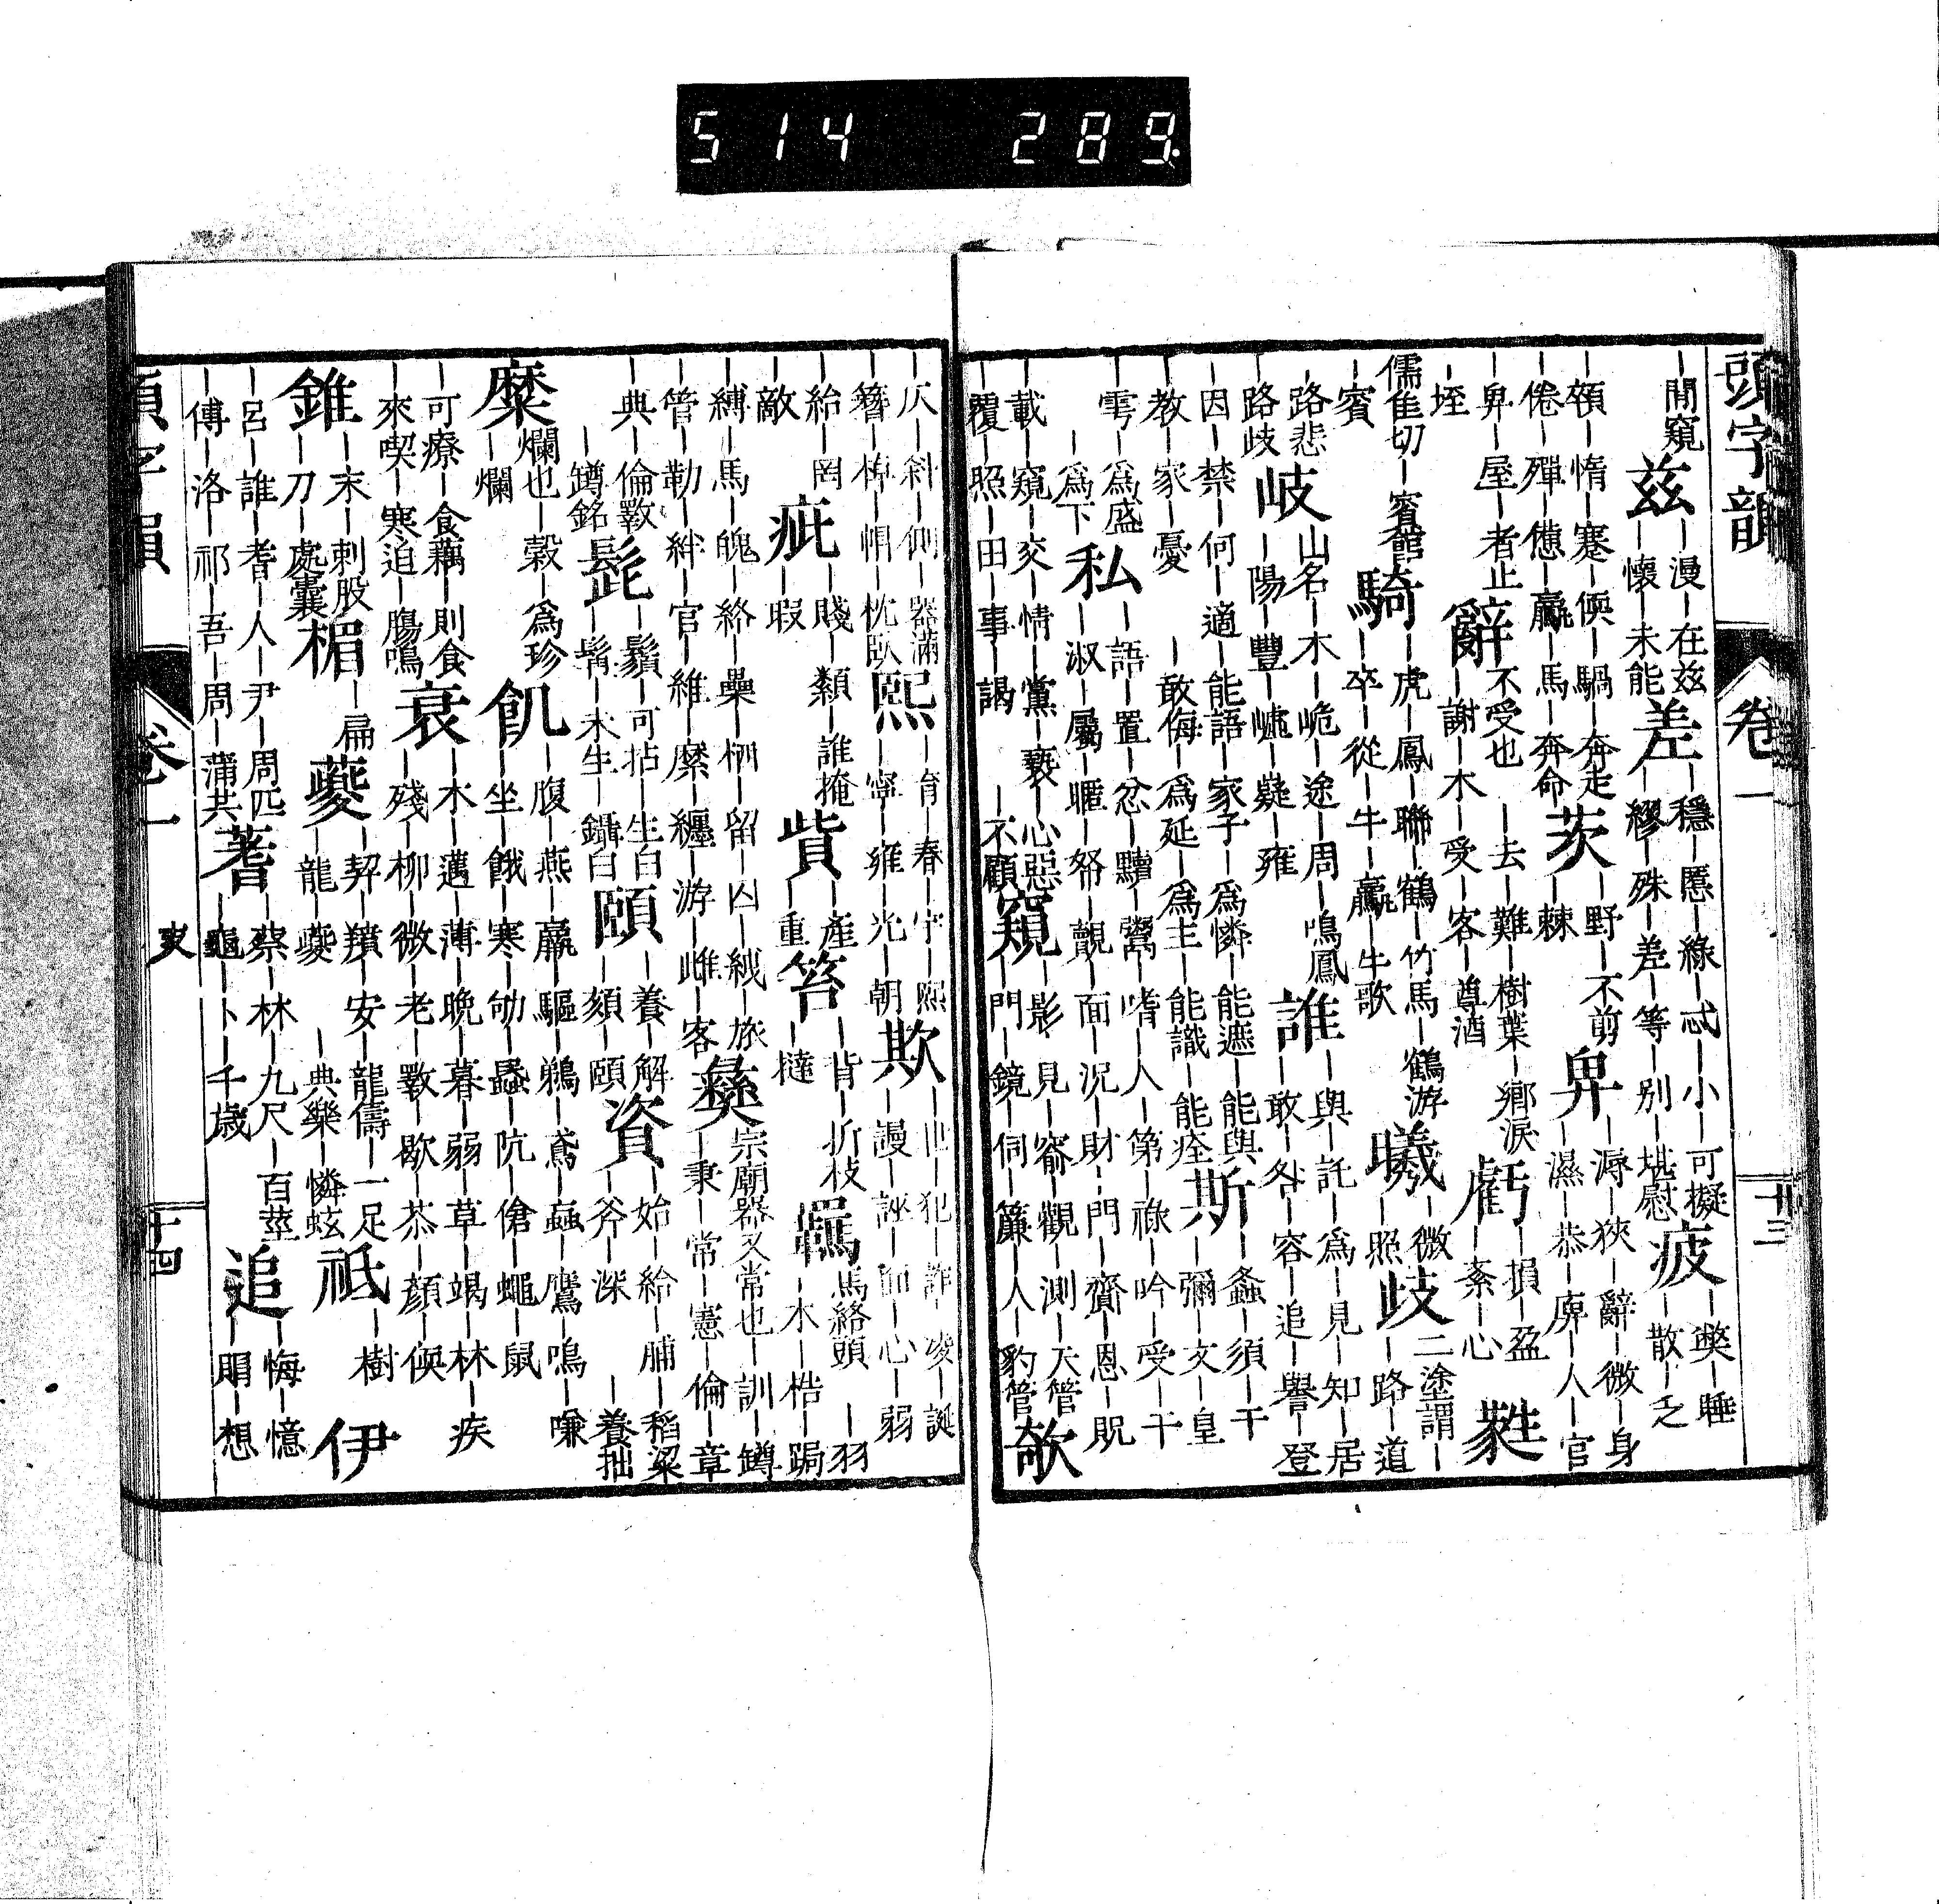 514 289
頭字韻 卷一 十三
｜閒窺 茲｜漫｜在茲｜懷｜未能 差｜穩｜慝｜綠｜忒｜小｜可擬｜繆｜殊｜差｜等｜別｜堪慰 疲｜獘｜睡｜散｜乏
｜頞｜惰｜蹇｜㑨｜騧｜奔走｜倦｜殫｜憊｜羸｜馬｜奔命 茨｜野｜不剪｜棘 卑｜溽｜狹｜辭｜微｜身｜濕｜恭｜庳｜人｜官
｜卑｜屋｜者止｜垤 辭不受也｜去｜難｜樹葉｜鄕淚｜謝｜木｜受｜客｜尊酒 虧｜損｜盈｜紊｜心 蕤
儒隹切｜賓館｜賓 騎｜虎｜鳳｜聯｜鶴｜竹馬｜鶴游｜卒｜從｜牛｜羸｜牛歌 曦｜微｜照 歧二塗謂｜｜路｜道
｜路悲｜路歧 岐｜山名｜木｜峗｜途｜周｜鳴鳳｜陽｜豐｜㠎｜嶷｜雍 誰｜與｜託｜爲｜見｜知｜居｜敢｜外｜容｜追｜譽｜登
｜因｜禁｜何｜適｜能語｜家子｜爲憐｜能遮｜能與｜教｜家｜憂｜敢侮｜爲延｜爲主｜能識｜能痊 斯｜螽｜須｜干｜彌｜文｜皇
｜雩｜爲盛｜爲下 私｜語｜置｜忿｜黷｜鬻｜嗜｜人｜第｜祿｜吟｜受｜干｜淑｜屬｜暱｜帑｜覿｜面｜況｜財｜門｜齎｜恩｜貺
｜載｜窺｜交｜情｜黨｜褻｜心惡｜覆｜照｜田｜事｜謁｜不顧 窺｜影｜見｜窬｜觀｜測｜天管｜門｜鏡｜伺｜簾｜人｜豹管 欹
｜仄｜斜｜側｜器滿｜簪｜棹｜帽｜枕臥 熙｜育｜春｜宇｜熙｜寧｜雍｜光｜朝 欺｜世｜犯｜詐｜凌｜誕｜謾｜誣｜面｜心｜弱
｜紿｜罔｜敵 疵｜賤｜纇｜誰掩｜瑕 貲｜產｜重 笞｜背｜折枝｜撻 羈馬絡頭｜羽｜木｜梏｜跼
｜縛｜馬｜餽｜絡｜壘｜栖｜留｜囚｜紲｜旅｜管｜勒｜絆｜官｜維｜縻｜纏｜游｜雌｜客 彝宗廟器又常也｜訓｜罇｜秉｜常｜憲｜倫｜章
｜典｜倫斁｜罇銘 髭｜鬚｜可拈｜生白｜髯｜未生｜鑷白 頤｜養｜解｜頦｜頤 資｜始｜給｜脯｜稻粱｜斧｜深｜養拙
糜爛也｜穀｜爲珍｜爛 飢｜腹｜燕｜羸｜驅｜鵜｜鳶｜蟲｜鷹｜鳴｜嗛｜坐｜餓｜寒｜劬｜蟁｜阬｜傖｜蠅｜鼠
｜可療｜食藕｜則食｜來喫｜寒迫｜腸鳴 衰｜木｜邁｜薄｜晚｜暮｜弱｜草｜竭｜林｜疾｜殘｜柳｜微｜老｜斁｜歇｜苶｜顏｜㑨
錐｜末｜刺股｜刀｜處囊 楣｜扁 夔｜契｜羵｜安｜龍儔｜一足｜龍｜夔｜典樂｜憐蚿 祗｜樹 伊
｜呂｜誰｜耆｜人｜尹｜周匹｜傅｜洛｜祁｜吾｜周｜蒲共 蓍｜蔡｜林｜九尺｜百莖｜龜｜卜｜千歲 追｜悔｜憶｜朋｜想
頭字韻 卷一 十四